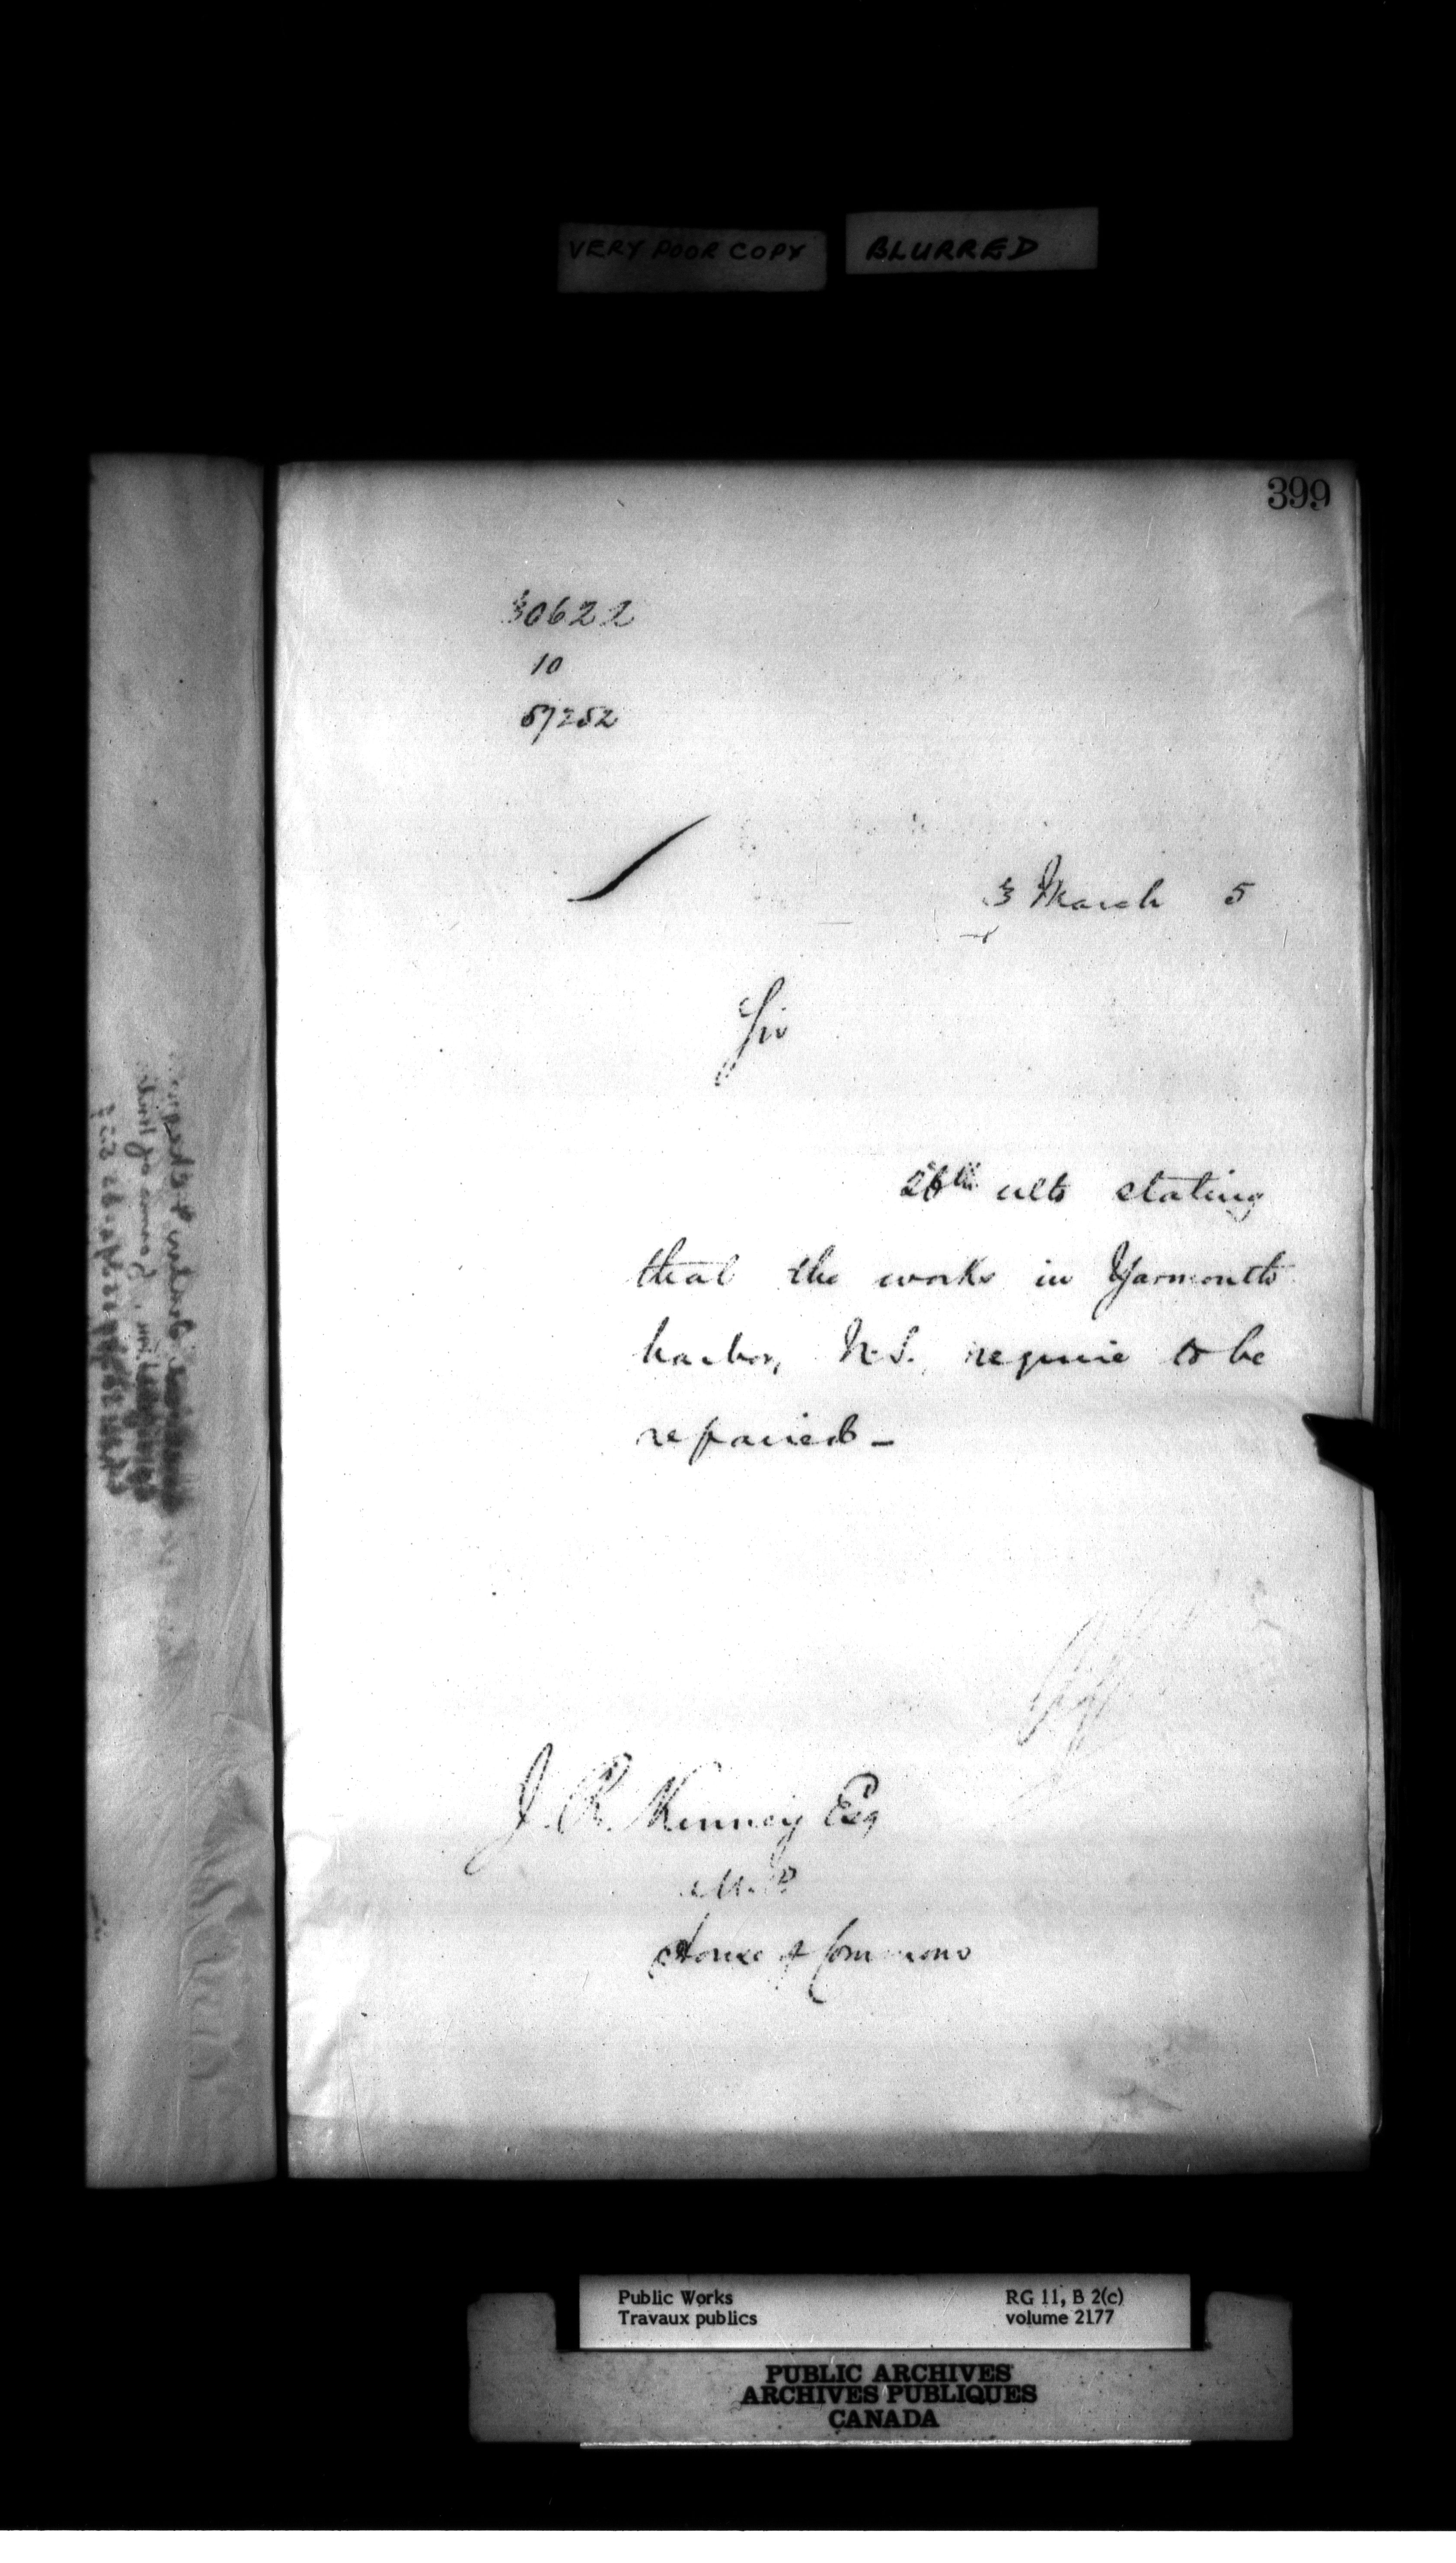 VERY POOR COPY BLURRED
399
30622
10
57252
3 March 5
Sir
26th ulto stating
that the works in Yarmouth
harbor, N.S., require to be
repaired _
J. R. Kinney Esq
M.P.
House of Commons
Public Works RG 11, B 2(c)
Travaux publics volume 2177
PUBLIC ARCHIVES
ARCHIVES PUBLIQUES
CANADA